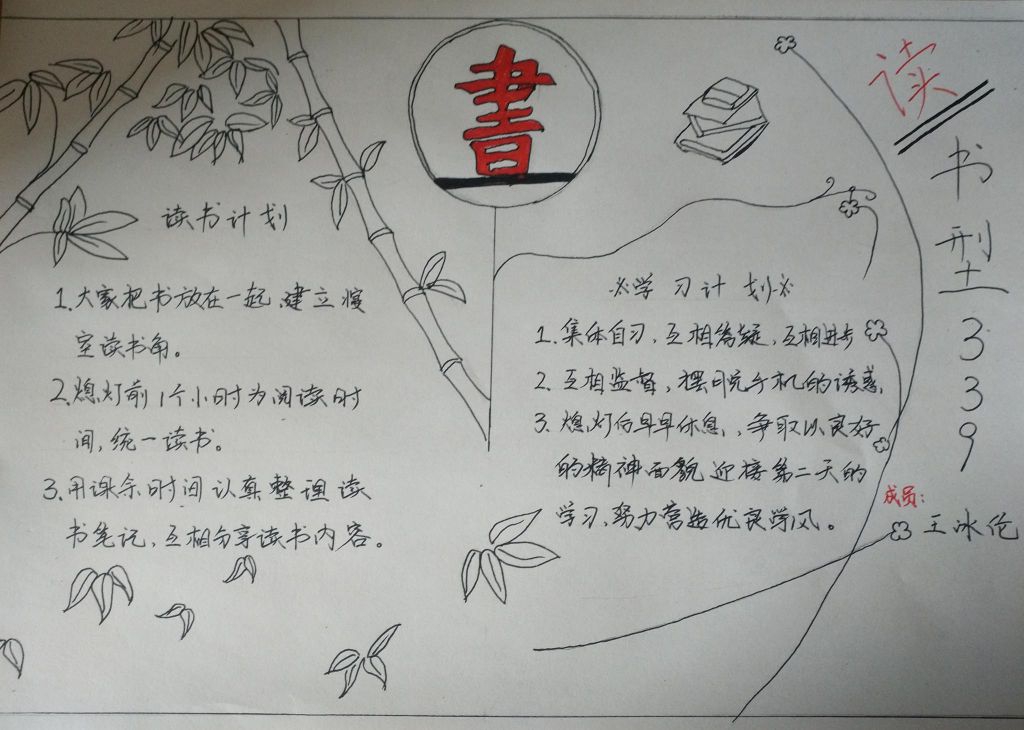 書
读书型339
成员:
王冰伦
读书计划
1.大家把书放在一起,建立寝
室读书角。
2.熄灯前1个小时为阅读时
间,统一读书。
3.用课余时间认真整理读
书笔记,互相分享读书内容。
※学习计划※
1.集体自习,互相答疑,互相进步
2.互相监督,摆脱手机的诱惑.
3.熄灯后早早休息,争取以良好
的精神面貌迎接第二天的
学习,努力营造优良学风。